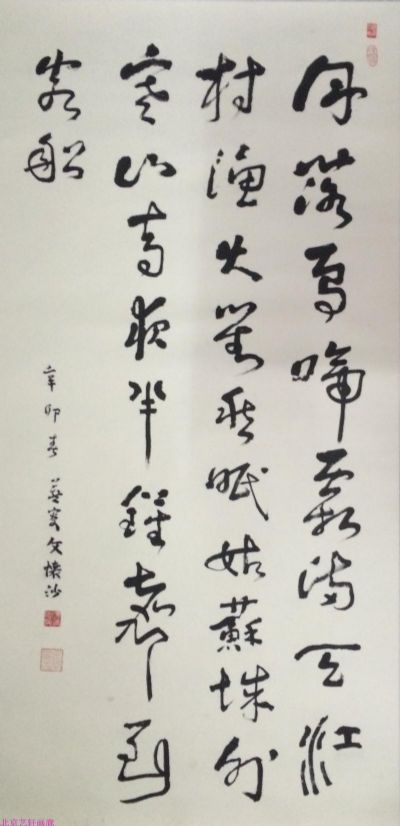 月落烏啼霜滿天江
村漁火對愁眠姑蘇城外
寒山寺夜半鐘聲到
客船
辛卯春 燕叟文懷沙
北京艺轩画廊